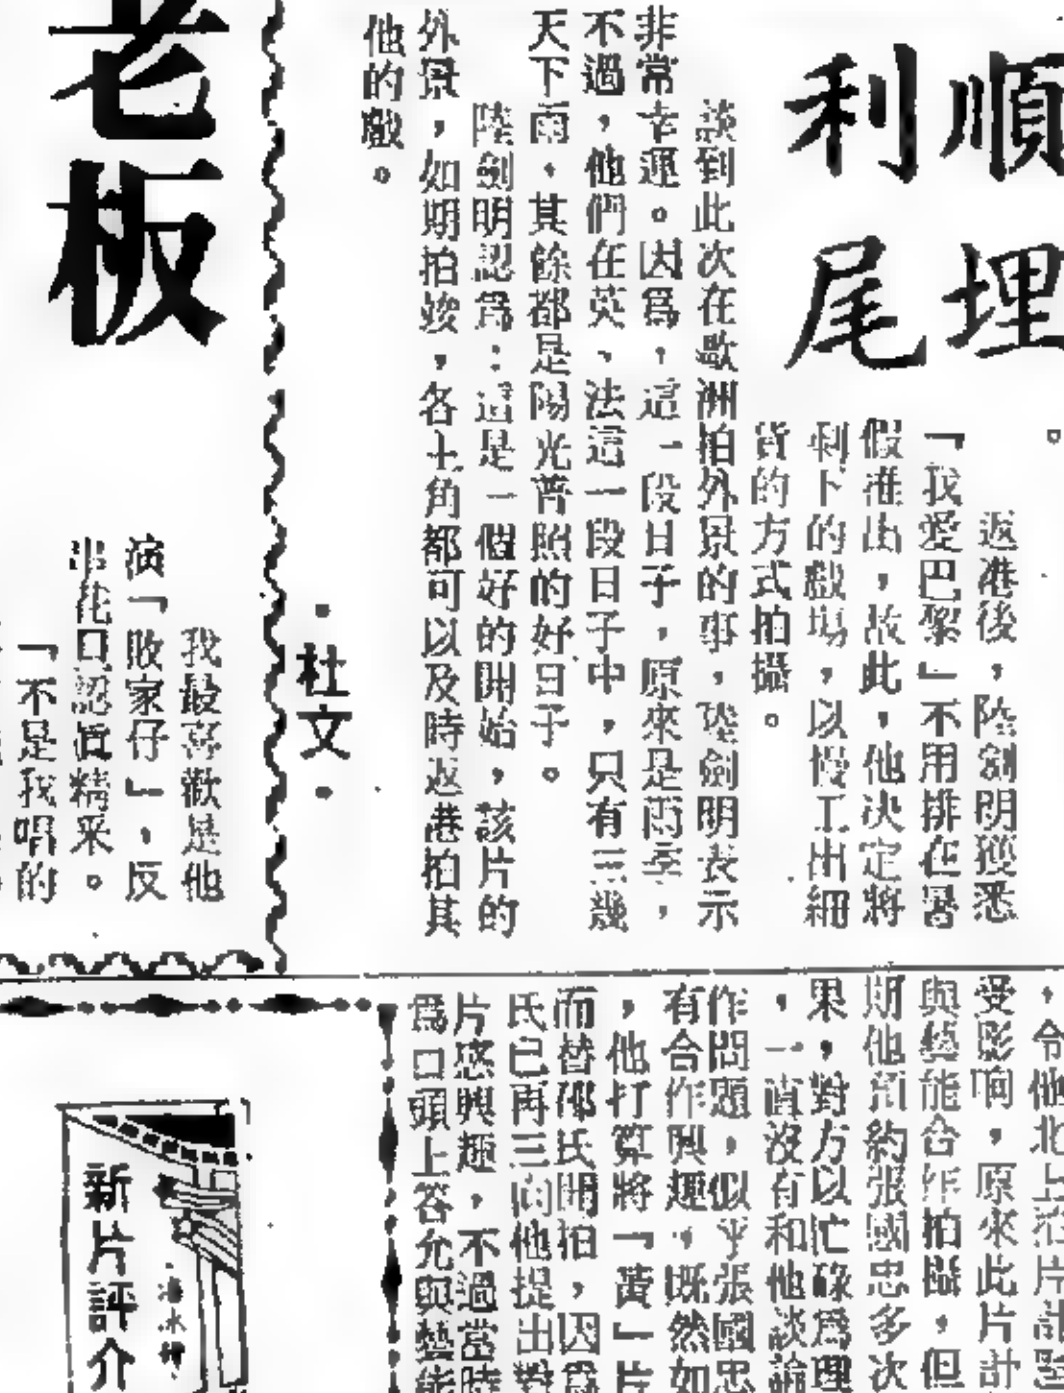 順利
埋尾
。
返港後，陸劍明獲悉
「我愛巴黎」不用排在暑
假推出，故此，他決定將
剩下的戲場，以慢工出細
貨的方式拍攝。
談到此次在歐洲拍外景的事，陸劍明表示
非常幸運。因爲，這一段日子，原來是雨季，
不過，他們在英、法這一段日子中，只有三幾
天下雨，其餘都是陽光普照的好日子。
陸劍明認爲：這是一個好的開始，該片的
外景，如期拍竣，各主角都可以及時返港拍其
他的戲。
•杜文•
老板
我最喜歡是他
演「敗家仔」，反
串花旦認眞精采。
「不是我唱的
，令他北上
受影响，原來此片計
與藝能合作拍攝，但
期他預約張國忠多次
果，對方以忙碌爲理
，一直沒有和他談論
作問題，似乎張國忠
有合作興趣，既然如
，他打算將「黃」片
而替邵氏開拍，因爲
氏已再三向他提出對
片感興趣，不過當時
爲口頭上答允與藝能
新片評介